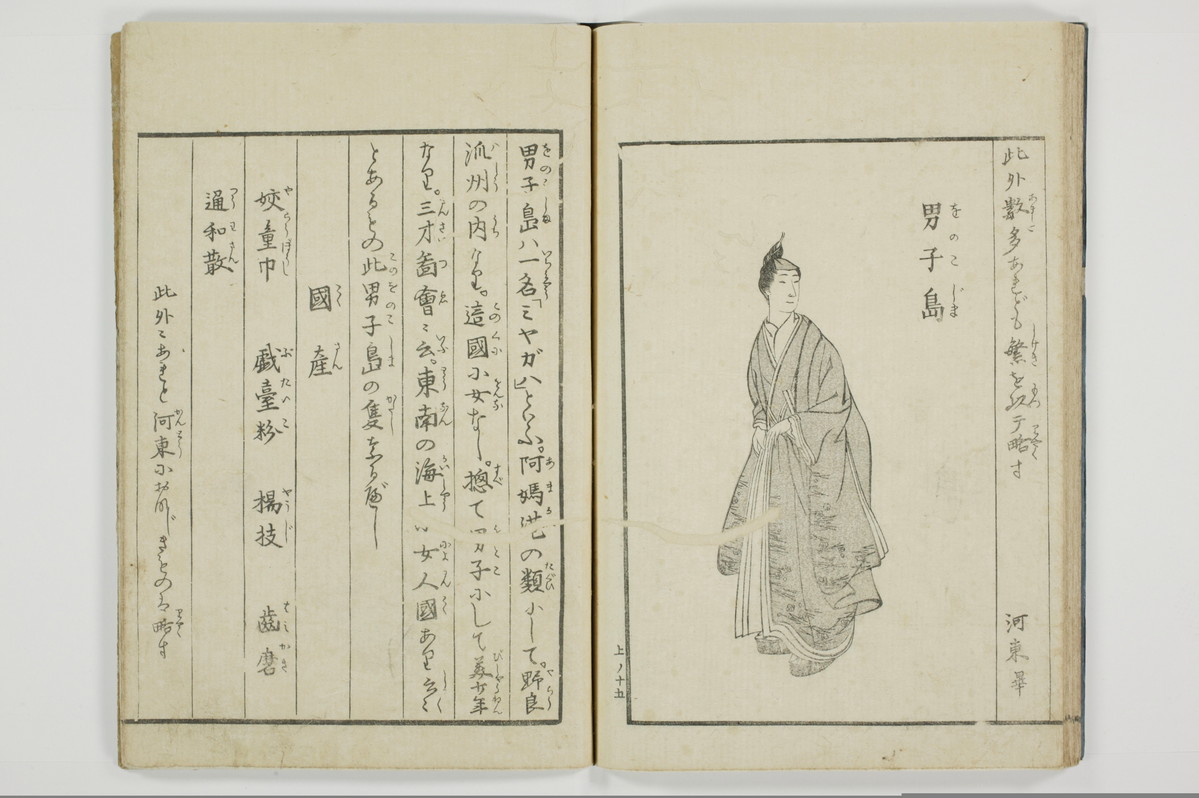 此外數多あれども繁を以テ略す
河東畢
男子島
をのこじま
上ノ十五
男子島ハ一名「ミヤガハ」といふ。阿媽港の類にして。野良
派州の内なり。這國に女なし。摠て男子にして美少年
なり。三才圖會ニ云。東南の海上ニ女人國あり云々
とあるとの此男子島の隻なるべし
國産
姣童巾 戯臺粉 楊技 齒磨
通和散
此外ニあれど河東に
略す